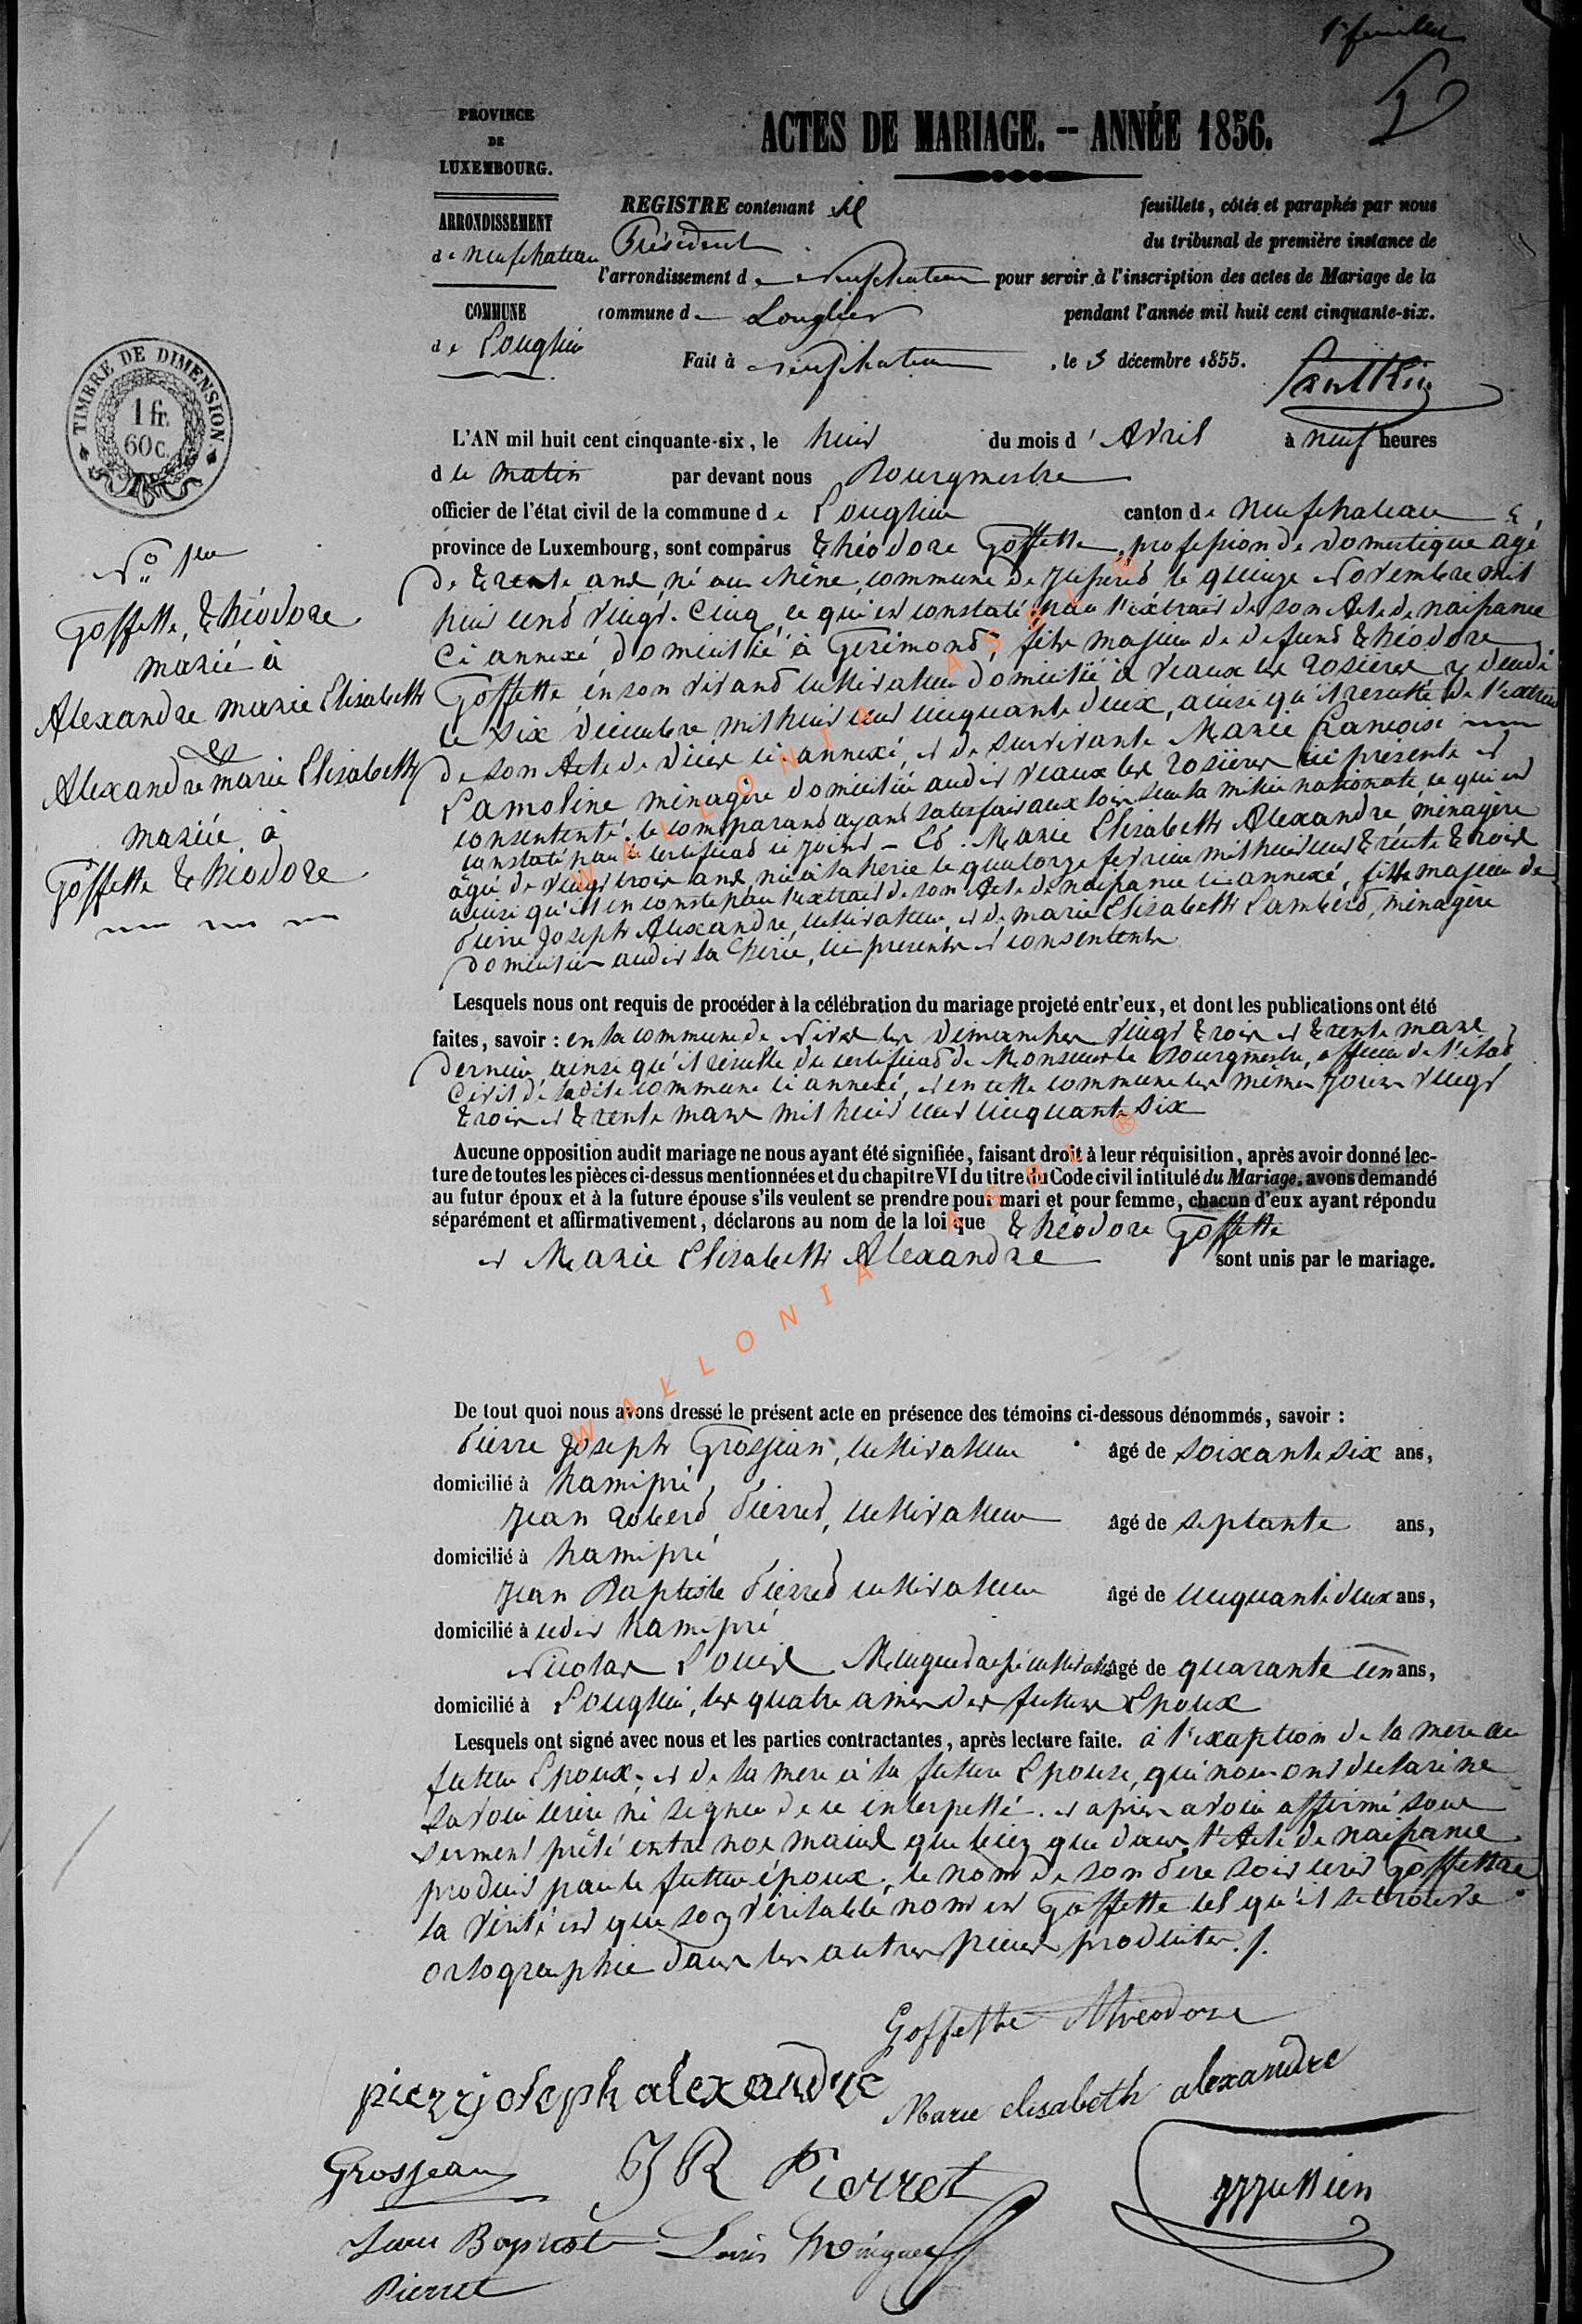 1er feuillet
PROVINCE
DE
LUXEMBOURG.
ARRONDISSEMENT
de Neufchateau
COMMUNE
de Longlier
TIMBRE DE DIMENSION
1 fr.
60 c.
ACTES DE MARIAGE. -- ANNÉE 1856.
REGISTRE contenant feuillets, côtés et paraphés par nous
Président du tribunal de première instance de
l'arrondissement de Neufchateau pour servir à l'inscription des actes de Mariage de la
commune de Longlier pendant l'année mil huit cent cinquante-six.
Fait à Neufchateau, le 3 décembre 1855.
L'AN mil huit cent cinquante-six, le huit du mois d'Avril à neuf heures
de matin par devant nous Bourgmestre
officier de l'état civil de la commune de Longlier canton de Neufchateau
province de Luxembourg, sont comparus Théodore Goffette, profession de domestique agé
de trente ans né au chêne, commune de le quinze Novembre mil
huit cent vingt-cinq, ce qui est constaté par l'extrait de son Acte de naissance
ci annexé, domicilié à Gerimont, fils majeur de defunt Théodore
Goffette, en son vivant cultivateur domicilié à Veaux les rosieres y decedé
le six Décembre mil huit cent cinquante deux, ainsi qu'il resulte de l'extrait
de son Acte de Décès ci annexé, et de survivante Marie Francoise
Lamoline ménagère domiciliée audit Veaux les rosieres ici presente et
consentente. le comparant ayant satisfait aux lois sur la milice nationale ce qui est
constaté par le certificat ci joint - Et. Marie Elisabeth Alexandre, ménagère
âgée de vingt trois ans, née à la herie le quatorze fevrier mil huit cent trente trois
ainsi qu'il en conste par l'extrait de son Acte de naissance ci annexé, fille majeur de
Pierre Joseph Alexandre, cultivateur, et de marie Elisabeth Lambert, ménagère
domiciliés audit la herie, ici presents et consentents
No 1er
Goffette, Théodore
marié à
Alexandre marie Elisabeth
&
Alexandre marie Elisabeth
mariée à
Goffette Théodore
Lesquels nous ont requis de procéder à la célébration du mariage projeté entr'eux, et dont les publications ont été
faites, savoir : en la commune de Nives les Dimanches vingt trois et trente mars
dernier ainsi qu'il resulte du certificat de Monsieur le Bourgmestre, officier de l'état
civil de ladite commune ci annexé, et en cette commune les mêmes jours vingt
trois et trente mars mil huit cent cinquante six
Aucune opposition audit mariage ne nous ayant été signifiée, faisant droit à leur réquisition, après avoir donné lec-
ture de toutes les pièces ci-dessus mentionnées et du chapitre VI du titre du Code civil intitulé du Mariage, avons demandé
au futur époux et à la future épouse s'ils veulent se prendre pour mari et pour femme, chacun d'eux ayant répondu
séparément et affirmativement, déclarons au nom de la loi que Théodore Goffette
et Marie Elisabeth Alexandre sont unis par le mariage.
De tout quoi nous avons dressé le présent acte en présence des témoins ci-dessous dénommés, savoir :
Pierre Joseph Grosjean, cultivateur âgé de soixante six ans,
domicilié à hamipré,
Jean robert Pierret, cultivateur âgé de septante ans,
domicilié à hamipré
Jean Baptiste Pierret cultivateur âgé de cinquante deux ans,
domicilié à udit hamipré
Nicolas Louis cultivateur âgé de quarante un ans,
domicilié à Longlier, les quatre amis des futurs Epoux
Lesquels ont signé avec nous et les parties contractantes, après lecture faite. à l'exception de la mere au
futur Epoux, et de la mere à la future Epouse, qui nous ont declaré ne
savoir ecrire ni signer de ce interpellé. et apres avoir affirmé sous
serment prêté entre nos mains que bien que dans l'Acte de naissance
produit par le futur époux, le nom de son Père soit ecrit Goffettre
la vérité est que son véritable nom est Goffette tel qu'il se trouve
ortographié dans les autres pieces produites ./.
Goffette Théodore
pierrejoseph alexandre
Marie elisabeth alexandre
Grosjean
JR Pierret
Jean Baptist
Pierret
Louis
WALLONIA ASBL ®
WALLONIA ASBL ®